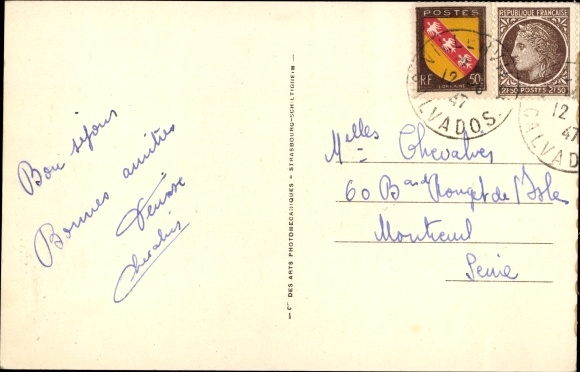 Bon séjour
Bonnes amitiés
Denise
Chevalier
Cie DES ARTS PHOTOMÉCANIQUES - STRASBOURG-SCHILTIGHEIM
POSTES
RF
50c
LORRAINE
RÉPUBLIQUE FRANÇAISE
2F50 POSTES 2F50
12
47
CALVADOS
12
47
CALVADOS
Melles Chevalier
60 Bard Rouget de l'Isle
Montreuil
Seine